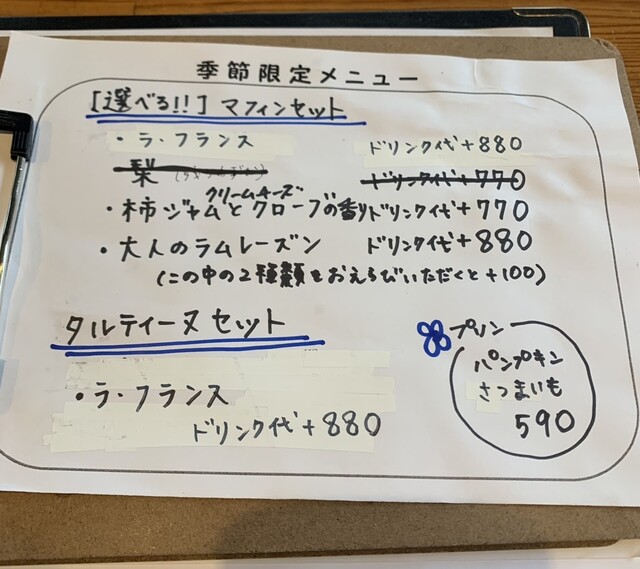 季節限定メニュー
[選べる!!] マフィンセット
・ラ・フランス ドリンク代+880
梨 ドリンク代+770
クリームチーズ
・柿ジャムとクローブの香り ドリンク代+770
・大人のラムレーズン ドリンク代+880
(この中の2種類をおえらびいただくと+100)
タルティーヌセット
・ラ・フランス
ドリンク代+880
プリン
パンプキン
さつまいも
590